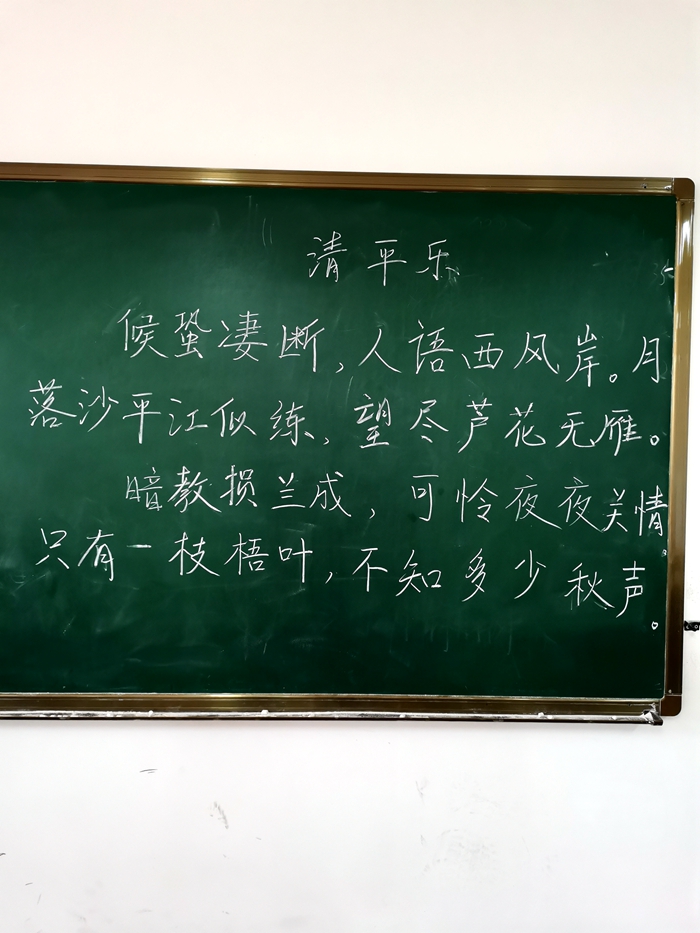 清平乐
候蛩凄断,人语西风岸。月
落沙平江似练,望尽芦花无雁。
暗教损兰成,可怜夜夜关情。
只有一枝梧叶,不知多少秋声。